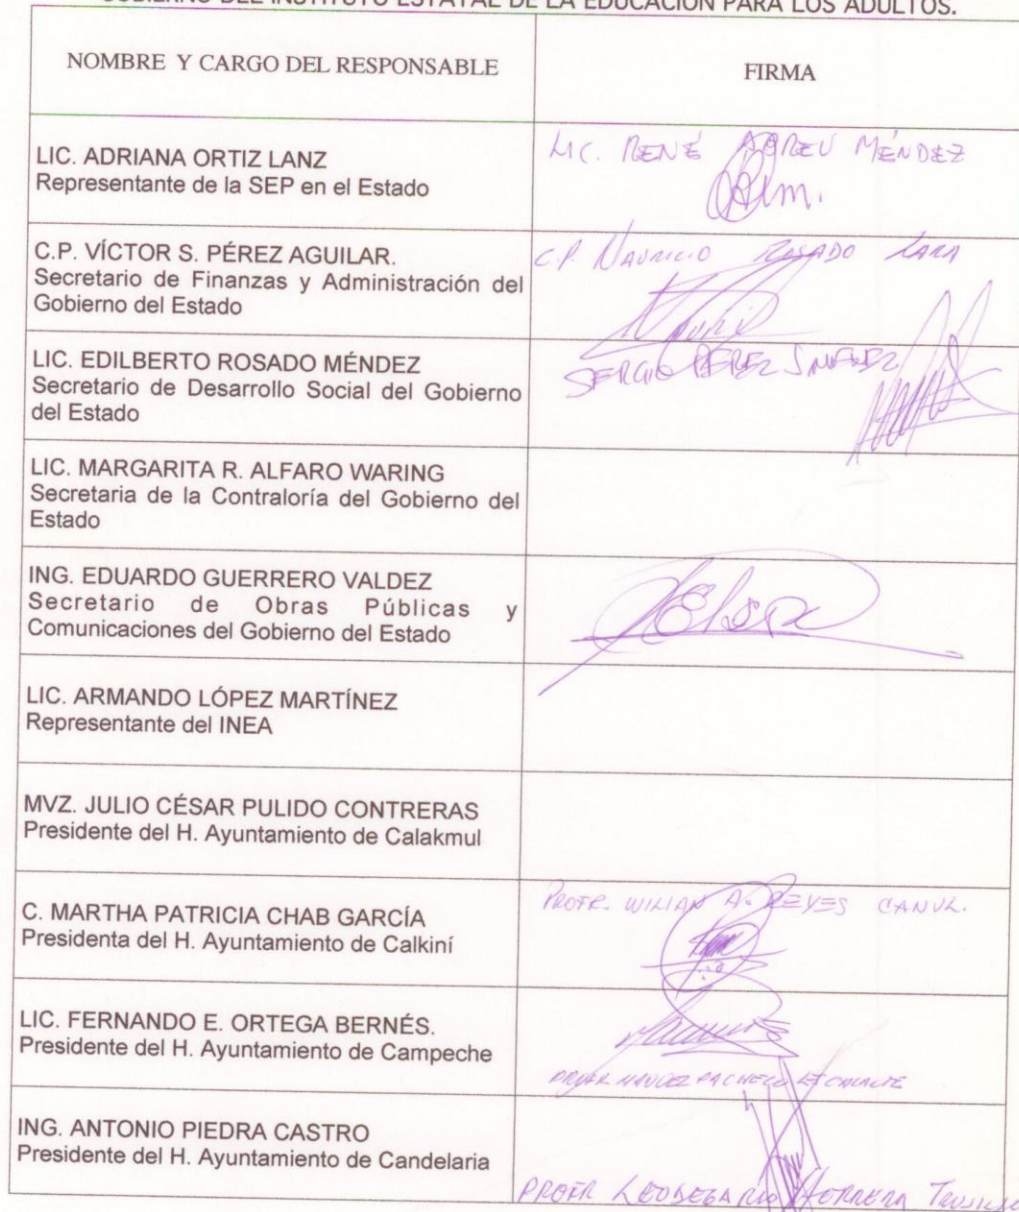 GOBIERNO DEL INSTITUTO ESTATAL DE LA EDUCACIÓN PARA LOS ADULTOS.
NOMBRE Y CARGO DEL RESPONSABLE
FIRMA
LIC. ADRIANA ORTIZ LANZ
Representante de la SEP en el Estado
LIC. RENÉ ABREU MÉNDEZ
C.P. VÍCTOR S. PÉREZ AGUILAR.
Secretario de Finanzas y Administración del
Gobierno del Estado
C.P. MAURICIO ROSADO LARA
LIC. EDILBERTO ROSADO MÉNDEZ
Secretario de Desarrollo Social del Gobierno
del Estado
SERGIO PÉREZ
LIC. MARGARITA R. ALFARO WARING
Secretaria de la Contraloría del Gobierno del
Estado
ING. EDUARDO GUERRERO VALDEZ
Secretario de Obras Públicas y
Comunicaciones del Gobierno del Estado
LIC. ARMANDO LÓPEZ MARTÍNEZ
Representante del INEA
MVZ. JULIO CÉSAR PULIDO CONTRERAS
Presidente del H. Ayuntamiento de Calakmul
C. MARTHA PATRICIA CHAB GARCÍA
Presidenta del H. Ayuntamiento de Calkiní
PROFR. WILIAN A. REYES CANUL.
LIC. FERNANDO E. ORTEGA BERNÉS.
Presidente del H. Ayuntamiento de Campeche
PACHECO
ING. ANTONIO PIEDRA CASTRO
Presidente del H. Ayuntamiento de Candelaria
PROFR LEODEGARIO HERRERA TRUJILLO